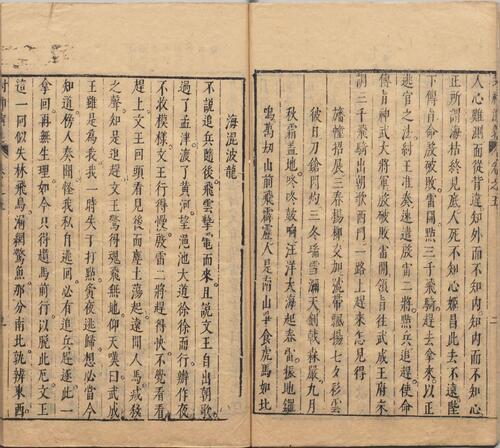 人心難測面從背違知外而不知內知內而不知心
正所謂海枯終見底人死不知心姬昌此去不遠陛
下傳旨命殷破敗雷開點三千飛騎趕去拿來以正
逃官之法紂王准奏速遣殷雷二將點兵追趕使命
傳旨神武大將軍殷破敗雷開領旨往武成王府來
調三千飛騎出朝歌西門一路上趕來怎見得
旛幢招展三春楊柳交加流帶飄揚七夕彩雲
彼日刀鎗閃灼三冬瑞雪瀰天劍戟森嚴九月
秋霜蓋地咚咚鼓响汪洋大海起春雷振地鑼
鳴萬刼山前飛霹靂人是南山爭食虎馬如北
海混波龍
不說追兵隨後飛雲掣電而來且說文王自出朝歌
過了孟津渡了黃河望澠池大道徐徐而行辦作夜
不收模樣文王行得慢殷雷二將趕得快不覺看看
趕上文王回頭看見後面塵土蕩起遠聞人馬喊殺
之聲知是追趕文王驚得魂飛無地仰天嘆曰武成
王雖是為我我一時失于打點夤夜逃歸想必當今
知道傍人奏聞怪我私自逃回必有追兵趕逐此一
拿回再無生理如今只得趲馬前行以脫此厄文王
這一回似失林飛鳥漏網驚魚那分南北孰辨東西